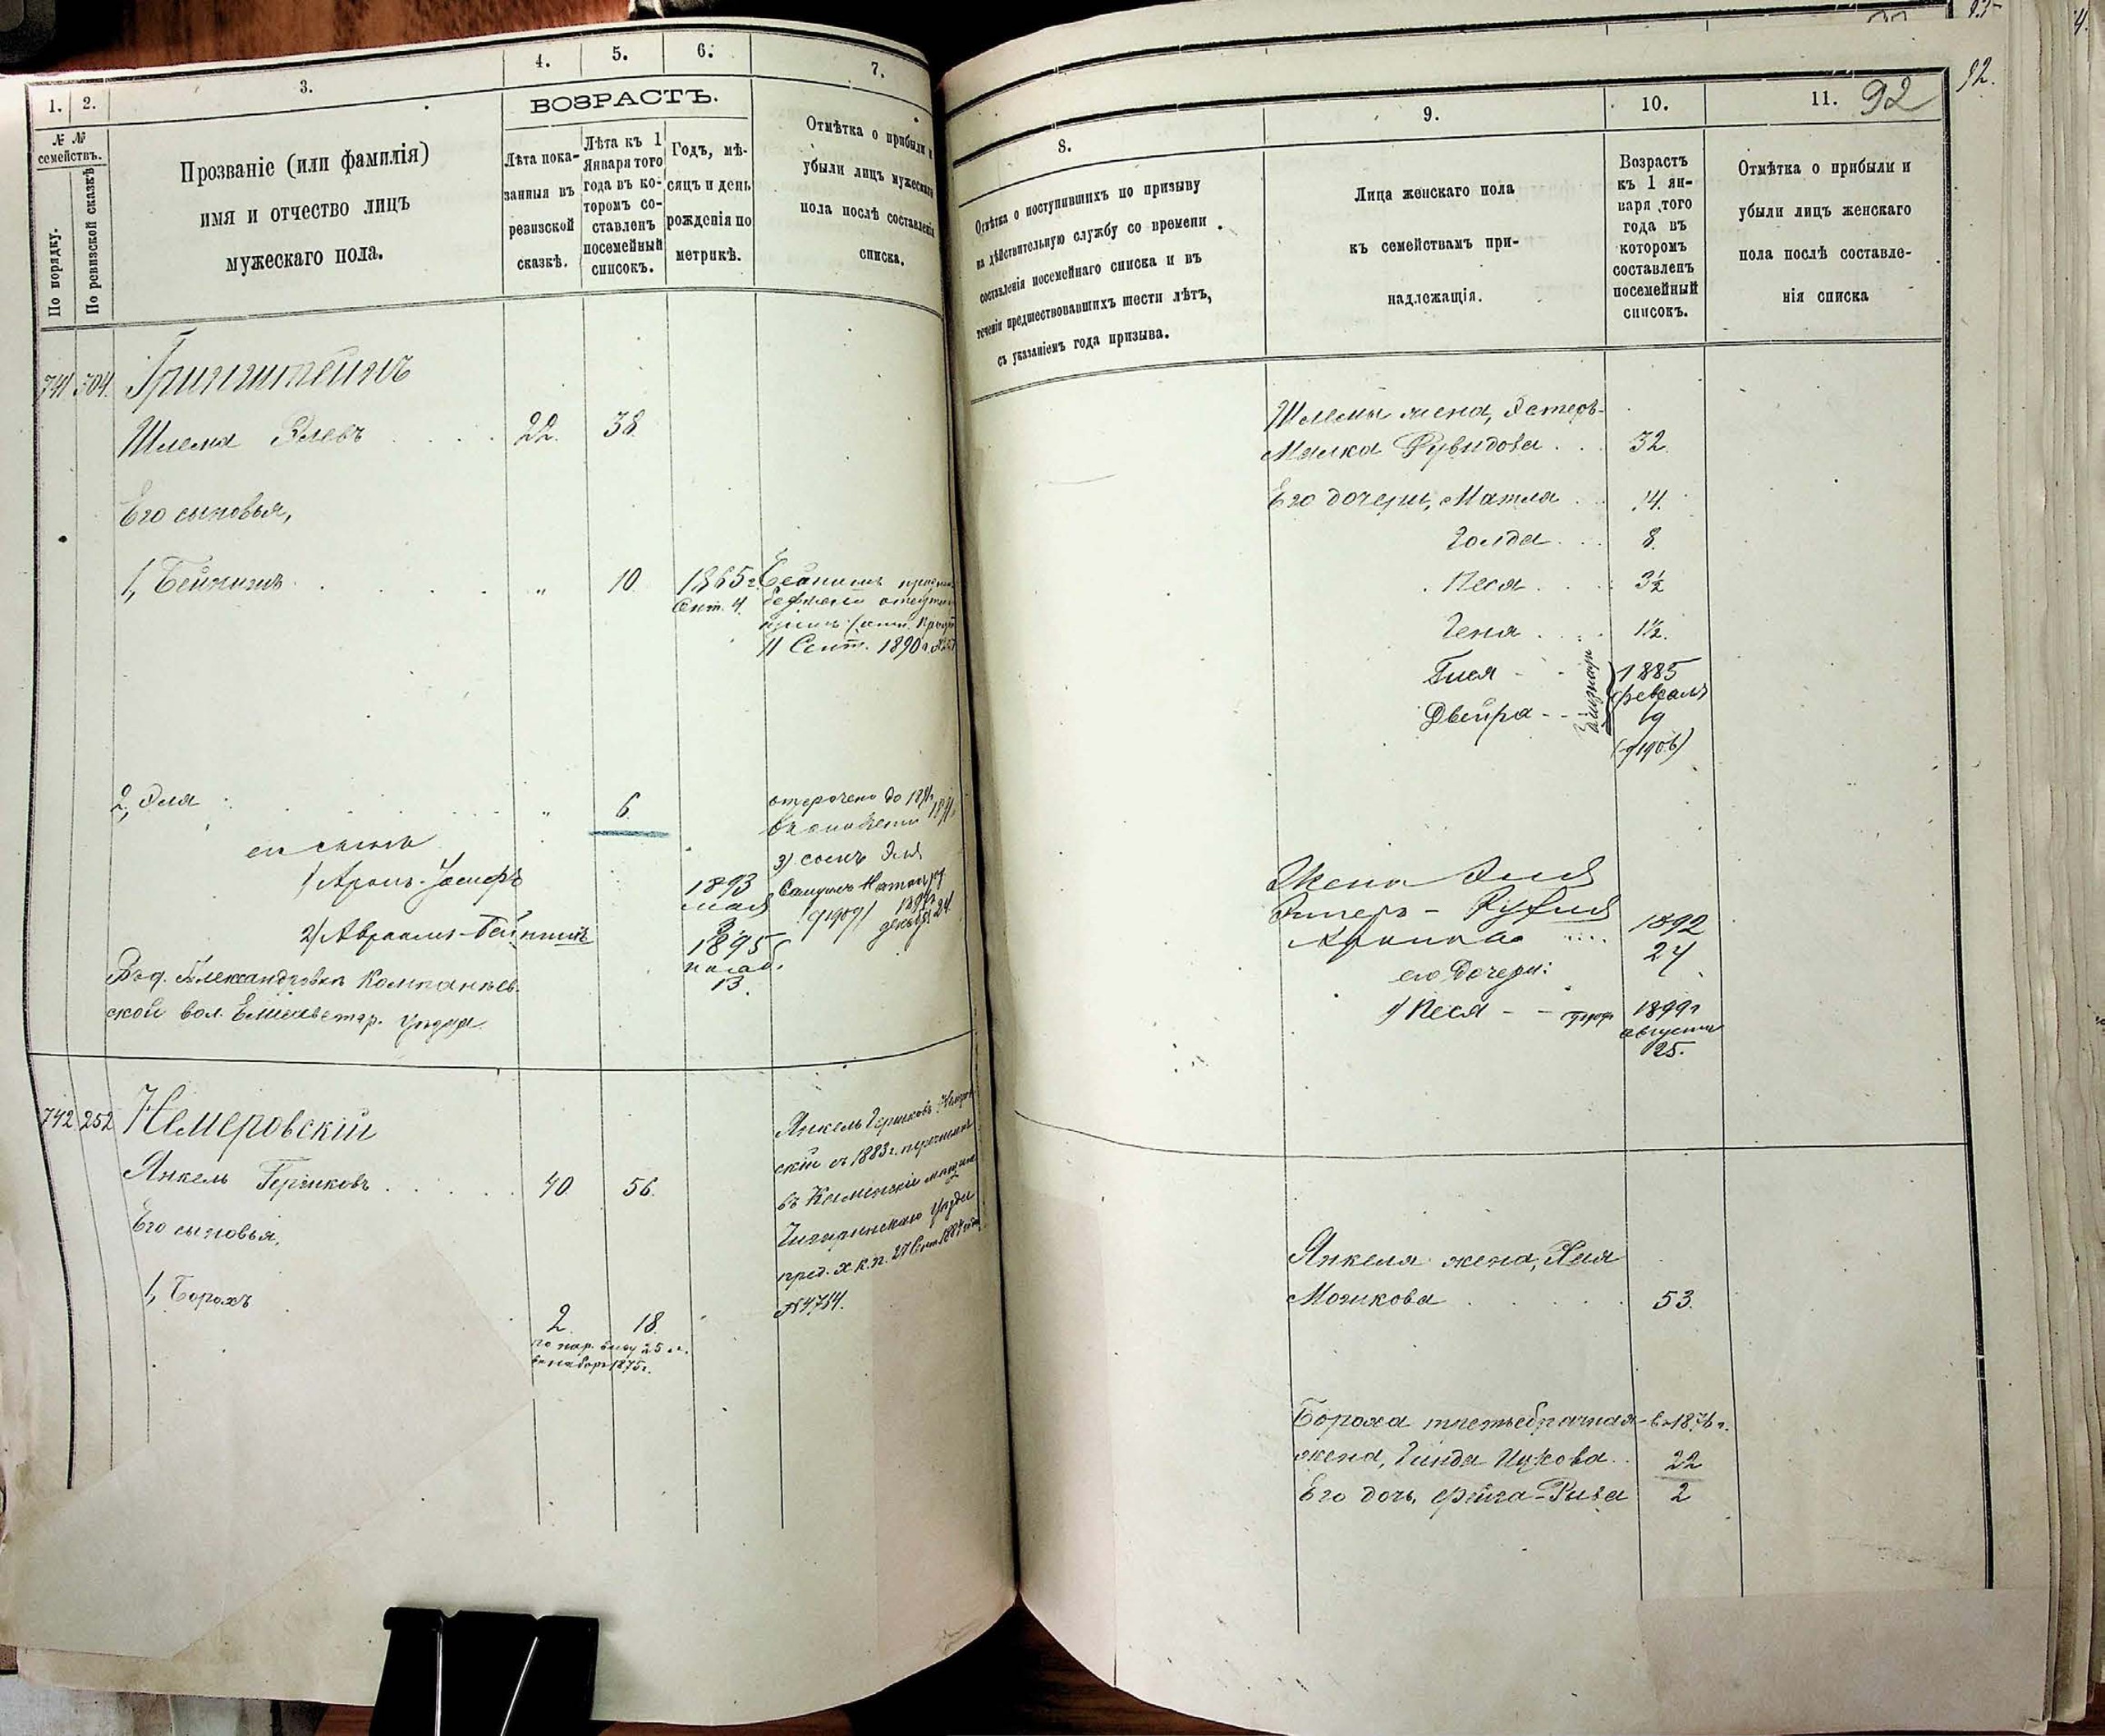 92.
1. 2. 3. 4. 5. 6. 7.
ВОЗРАСТЪ.
№ №
семействъ.
По порядку.
По ревизской сказкѣ
Прозваніе (или фамилія)
имя и отчество лицъ
мужескаго пола.
Лѣта пока-
занныя въ
ревизской
сказкѣ.
Лѣта къ 1
Января того
года въ ко-
торомъ со-
ставленъ
посемейный
списокъ.
Годъ, мѣ-
сяцъ и день
рожденія по
метрикѣ.
Отмѣтка о прибыли и
убыли лицъ мужескаго
пола послѣ составленія
списка.
741 304. Гринштейнъ
Шлема Элевъ 22. 38.
Его сыновья,
1, Бейнишъ „ 10. 1865 г.
Сент. 4.
11 Сент. 1890 г.
2, Эля „ 6.
отсрочено до
его сыновья
1) Аронъ-Іосифъ 1893
мая
3) сынъ Эля
2) Авраамъ-Бейнишъ 1895
13.
декабря 24
Род. Александровки Компанѣев-
ской вол. Елисаветгр. уѣзда
742 252 Немеровскій
Янкель Гершковъ 40. 56.
Его сыновья,
1, Борохъ 2. 18.
по нар. виду 25 л.
1875 г.
Янкель Гершковъ Немеров-
скій съ 1883 г. перечисленъ
въ Каменскіе мѣщане
Чигиринскаго уѣзда
пред. Х. К. П. 27 1884 года
№ 4754.
8. 9. 10. 11. 92
Отмѣтка о поступившихъ по призыву
на дѣйствительную службу со времени
составленія посемейнаго списка и въ
теченіи предшествовавшихъ шести лѣтъ,
съ указаніемъ года призыва.
Лица женскаго пола
къ семействамъ при-
надлежащія.
Возрастъ
къ 1 ян-
варя того
года въ
которомъ
составленъ
посемейный
списокъ.
Отмѣтка о прибыли и
убыли лицъ женскаго
пола послѣ составле-
нія списка
Шлемы жена, Эстеръ-
Малка Рувидова 32.
Его дочери, Матля 14.
Голда 8.
Песя 3½
Геня 1½.
Гися
Двейра
близнецы
1885
февраль
19
Жена Эля
Эстеръ-
1892
24
его дочери:
1) Песя 1899 г.
августа
25.
Янкеля жена, Хая
Мошкова 53.
Бороха третьебрачная въ 1876 г.
жена, Гинда Ицкова 22
Его дочь Фейга-Рыва 2